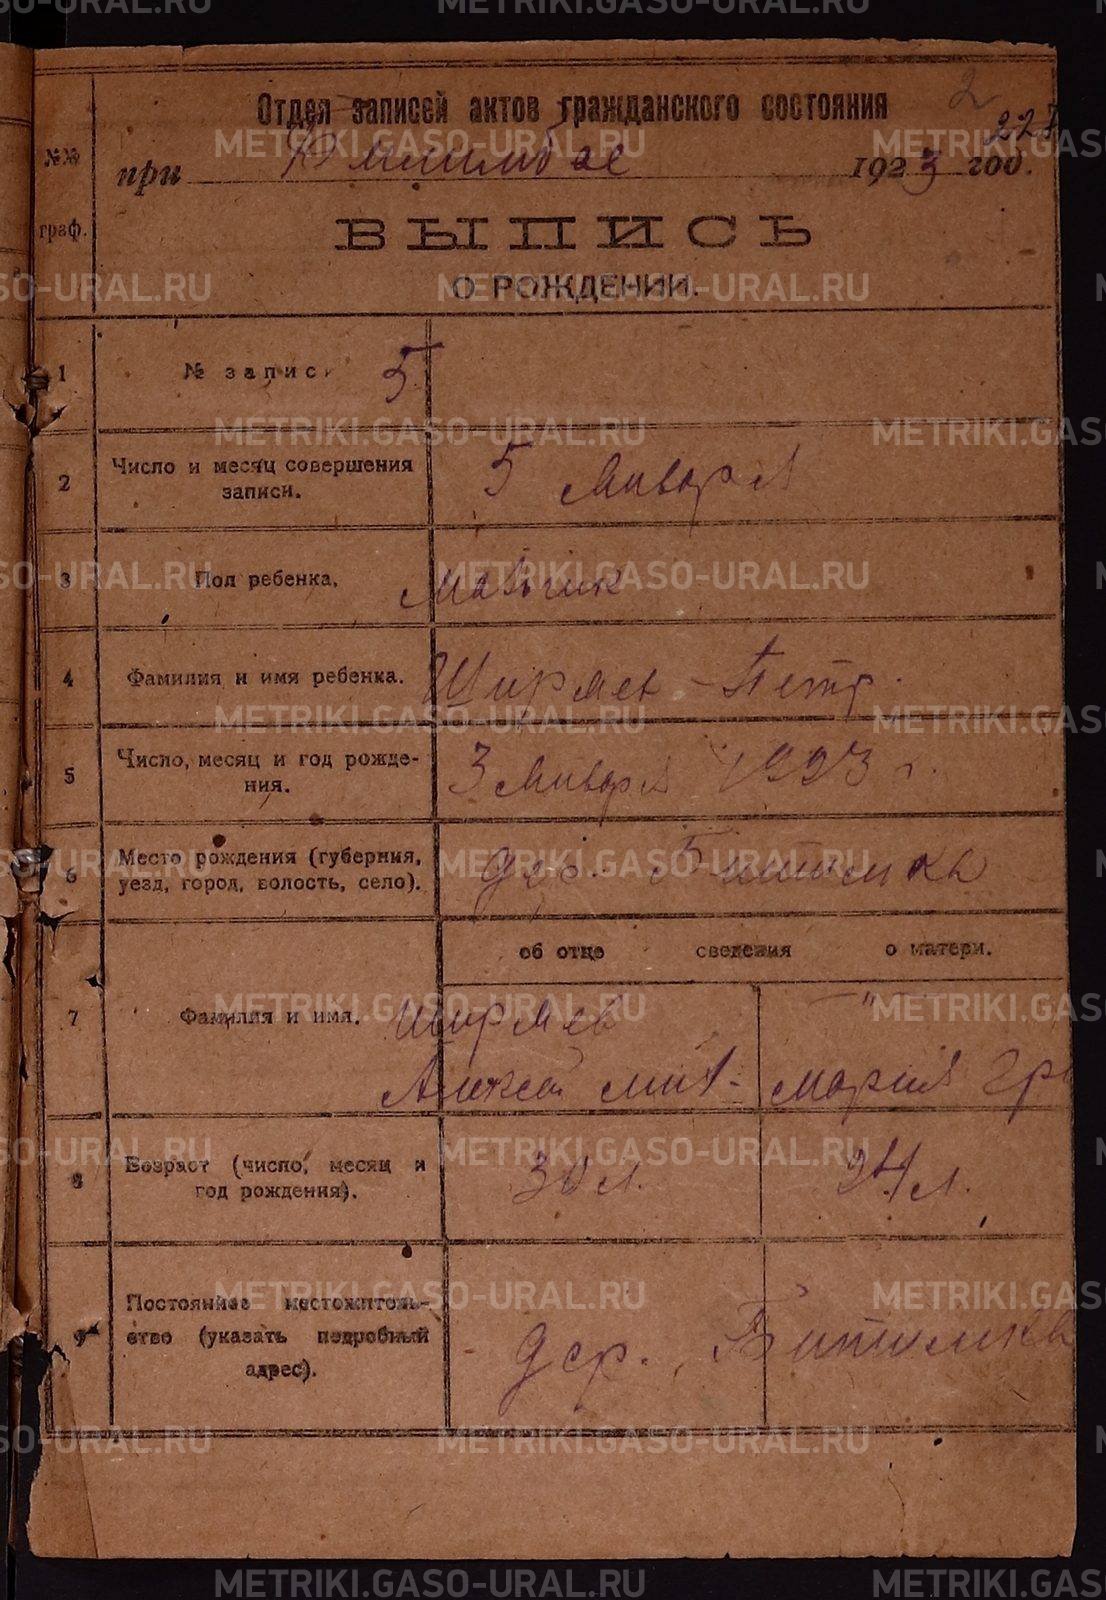 2
Отдел записей актов гражданского состояния
227
№№
граф.
при 1923 год.
ВЫПИСЬ
О РОЖДЕНИИ.
1 № записи 5
2 Число и месяц совершения записи. 5 Января
3 Пол ребенка. Мальчик
4 Фамилия и имя ребенка. Ширяев - Петр.
5 Число, месяц и год рождения. 3 Января 1923 г.
6 Место рождения (губерния, уезд, город, волость, село). дер. Битимка
об отце сведения о матери.
7 Фамилия и имя. Ширяев — " —
Алексей Мит. Мария Гри
8 Возраст (число, месяц и год рождения). 30 л. 24 л.
9 Постоянное местожительство (указать подробный адрес). дер. Битимка
METRIKI.GASO-URAL.RU